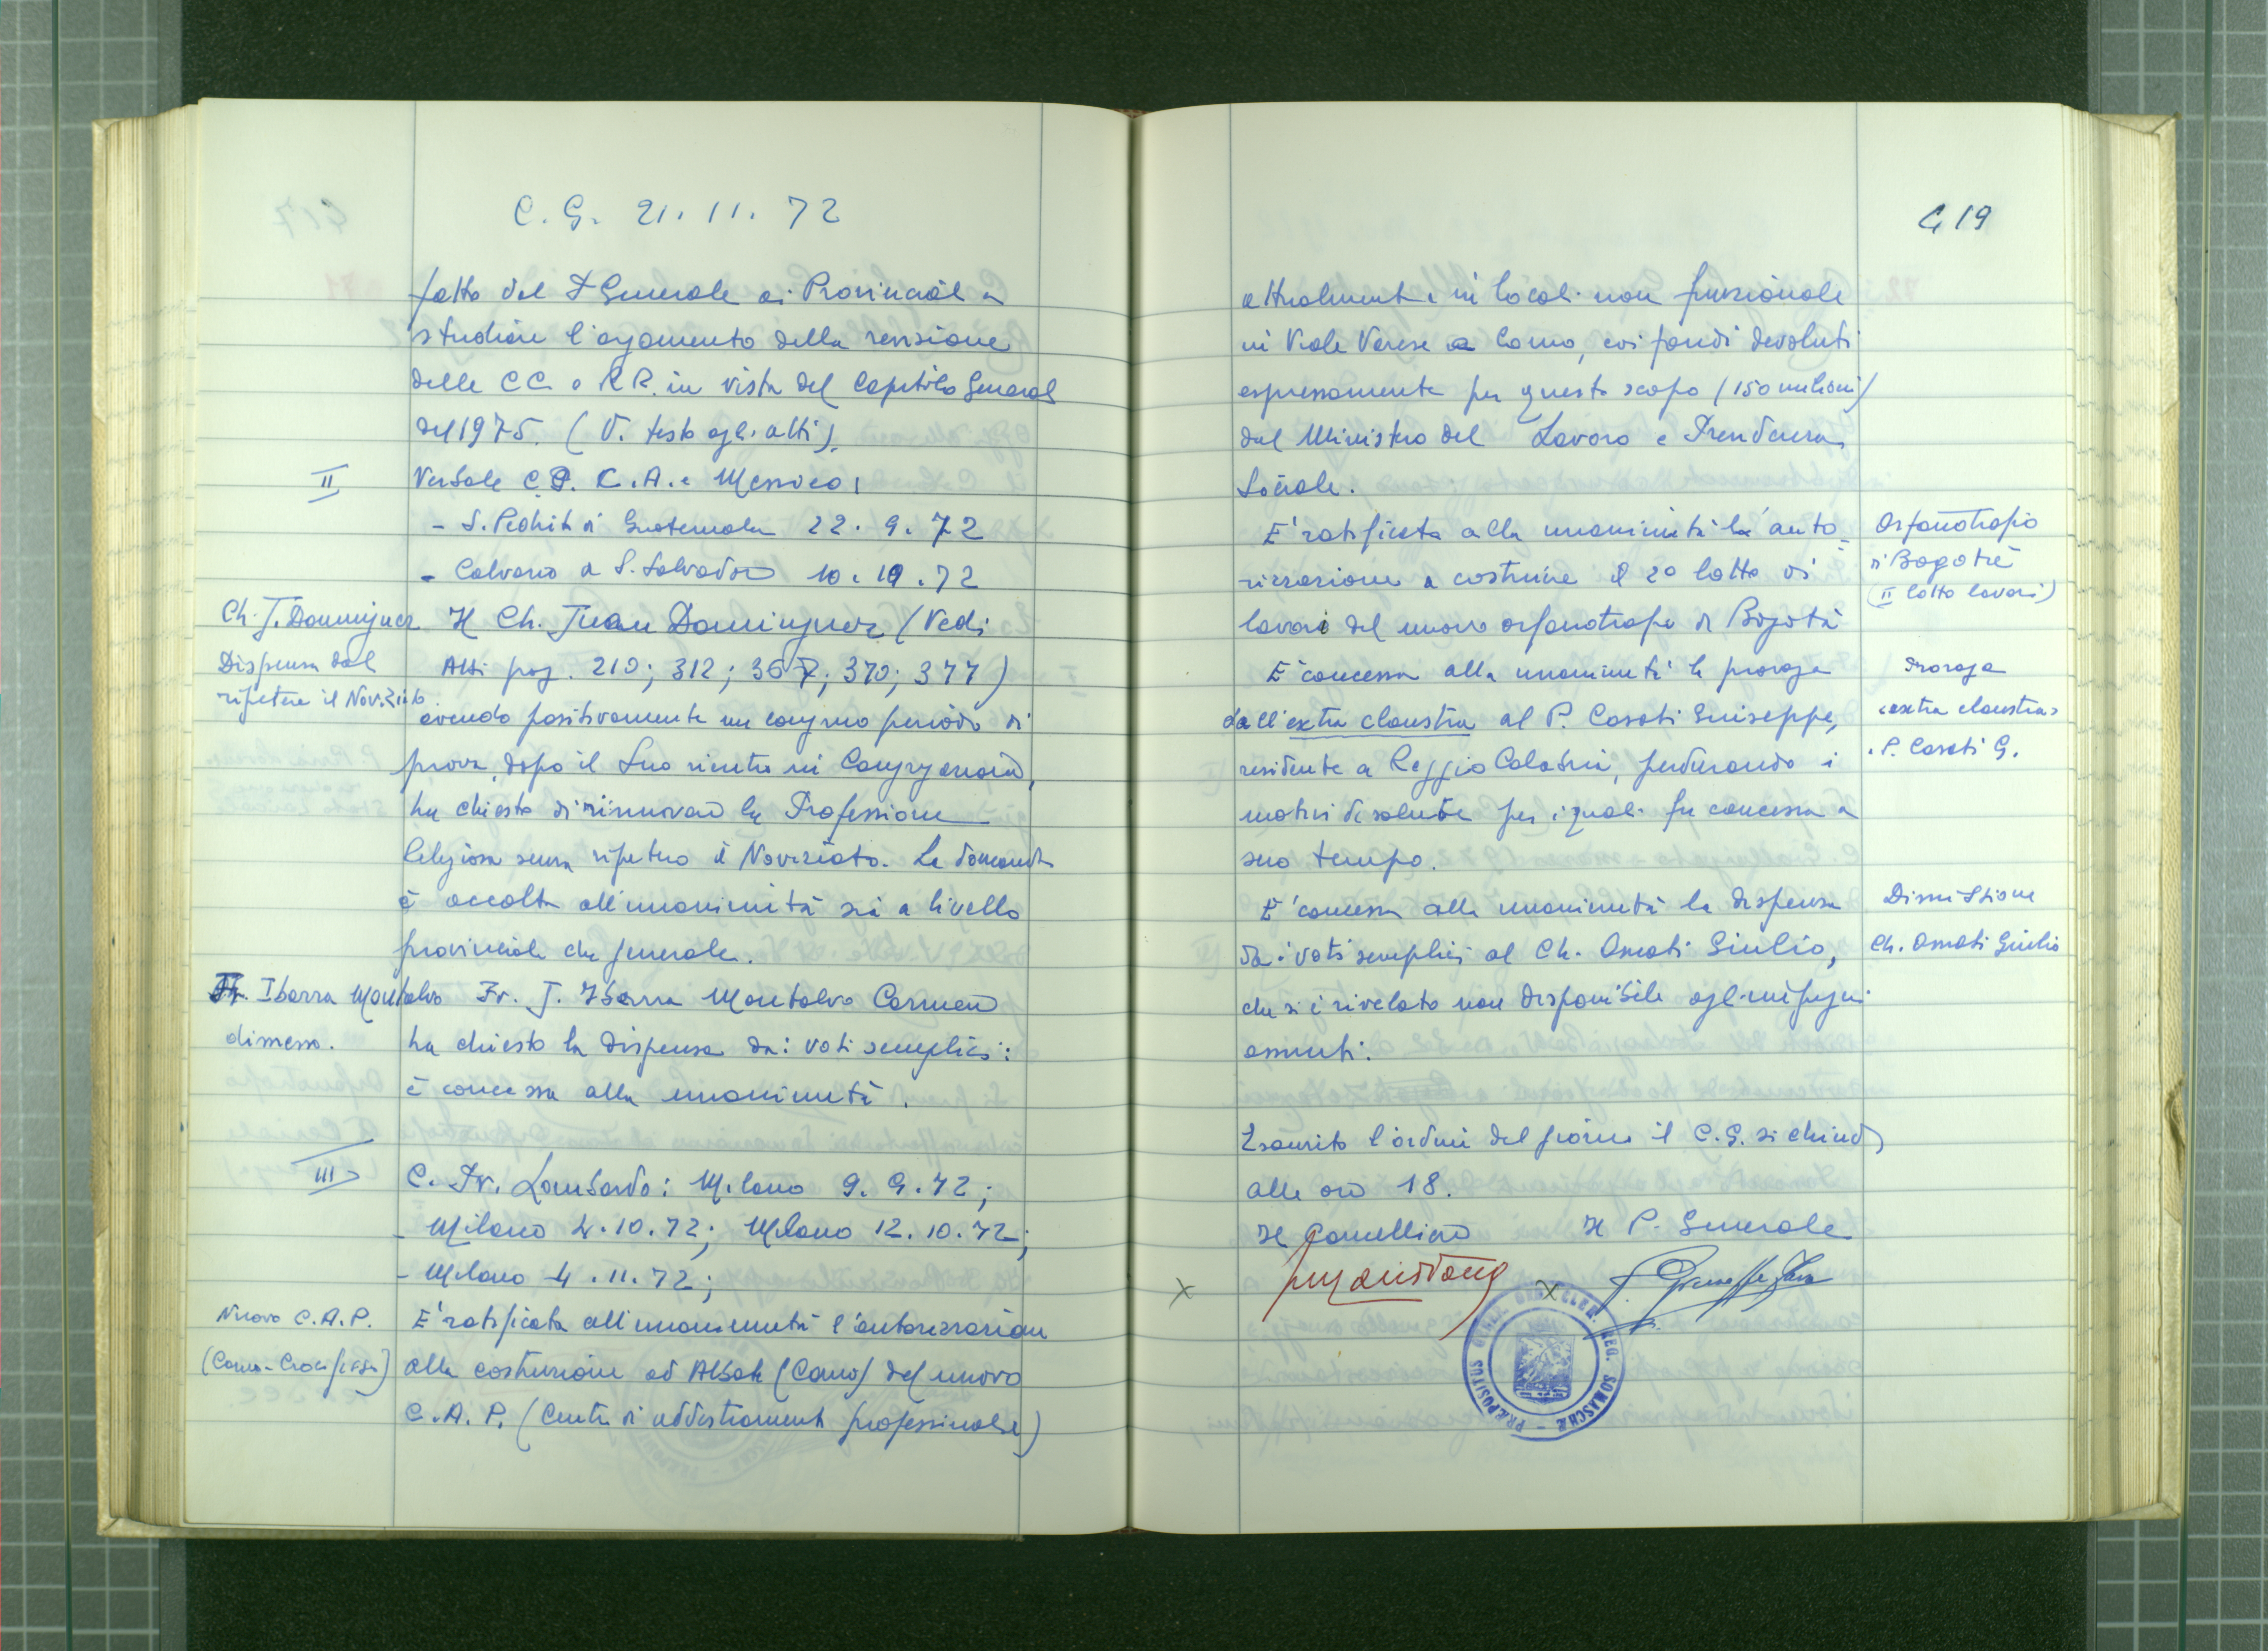 C. G. 21. 11. 72
fatto dal P Generale ai Provinciali a
studiare l'argomento della revisione
delle CC. e RR. in vista del Capitolo General
del 1975. (V. testo agli atti).
II
Verbale C.P. C.A. e Messico:
- S. Pedrito di Guatemala 22. 9. 72
- Calvario a S. Salvador 10. 10. 72
Ch. J. Dominguez
Dispensa dal
ripetere il Noviziato.
Il Ch. Juan Dominguez (Vedi
Atti pag. 210; 312; 367; 370; 377)
avendo positivamente un congruo periodo di
prova, dopo il Suo rientro in Congregazione,
ha chiesto di rinnovare la Professione
Religiosa senza ripetere il Noviziato. La domanda
è accolta all'unanimità sia a livello
provinciale che generale.
Fr. Ibarra Montalvo
dimesso.
Fr. J. Ibarra Montalvo Carmen
ha chiesto la dispensa dai voti semplici:
è concessa alla unanimità.
III
C. Pr. Lombardo: Milano 9. 9. 72;
- Milano 4. 10. 72; Milano 12. 10. 72;
- Milano 4. 11. 72;
Nuovo C.A.P.
(Como-Crocifisso)
E' ratificata all'unanimità l'autorizzazione
alla costruzione ad Albate (Como) del nuovo
C.A.P. (Centro di addestramento professionale)
419
attualmente in locali non funzionale
in Viale Varese a Como, coi fondi devoluti
espressamente per questo scopo (150 milioni)
dal Ministro del Lavoro e Previdenza
Sociale.
E' ratificata alla unanimità la auto-
rizzazione a costruire il 2° lotto di
lavori del nuovo orfanotrofio di Bogotà
Orfanotrofio
di Bogotà
(II lotto lavori)
E' concessa alla unanimità la proroga
dall'extra claustra al P. Casati Giuseppe,
residente a Reggio Calabria, perdurando i
motivi di salute per i quali fu concessa a
suo tempo.
Proroga
"extra claustra"
P. Casati G.
E' concessa alla unanimità la dispensa
dai voti semplici al Ch. Amati Giulio,
che si è rivelato non disponibile agli impegni
assunti.
Dimissione
Ch. Amati Giulio
Esaurito l'ordine del giorno il C.G. si chiude
alle ore 18.
Il Cancelliere Il P. Generale
x x
PRÆPOSITUS GENER. ORD. CLER. REG. SOMASCHÆ